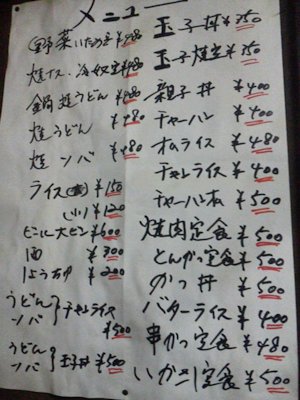 メニュー
玉子丼 ¥350
玉子焼定 ¥350
親子丼 ¥400
チャーハン ¥400
オムライス ¥480
チャレライス ¥400
チャーハン大 ¥500
焼肉定食 ¥500
とんかつ定食 ¥500
かつ丼 ¥500
バターライス ¥400
串かつ定食 ¥480
いかさし定食 ¥500
野菜いため定 ¥480
焼ナス、冷奴定 ¥480
鍋焼うどん ¥480
焼うどん ¥480
焼ソバ ¥480
ライス(大) ¥150
(小) ¥120
ビール大ビン ¥600
酒 ¥300
しょうちゅう ¥200
うどん
ソバ
チャレライス
¥500
うどん
ソバ
玉子丼 ¥500